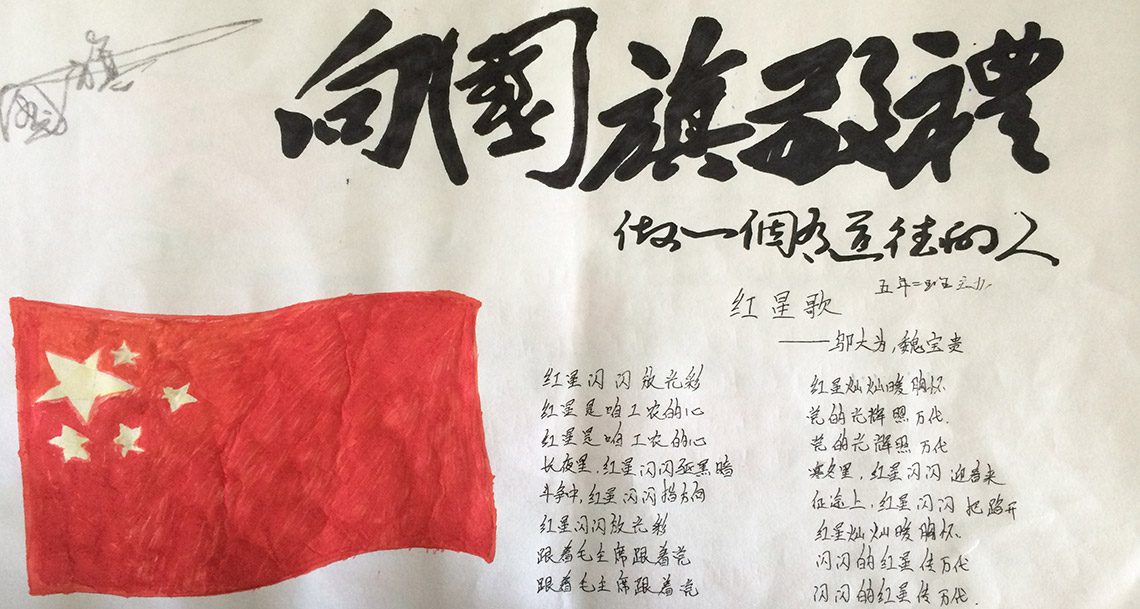 国旗
向國旗敬禮
做一個有道德的人
五年二班
红星歌
——邬大为,魏宝贵
红星闪闪放光彩
红星是咱工农的心
红星是咱工农的心
长夜里,红星闪闪驱黑暗
斗争中,红星闪闪指方向
红星闪闪放光彩
跟着毛主席跟着党
跟着毛主席跟着党
红星灿灿暖胸怀
党的光辉照万代.
党的光辉照万代
寒冬里,红星闪闪迎春来
征途上,红星闪闪把路开
红星灿灿暖胸怀
闪闪的红星传万代
闪闪的红星传万代.